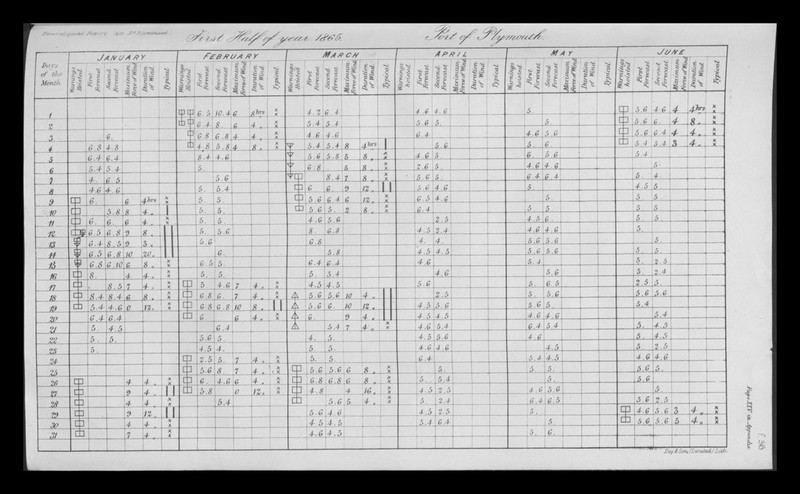 First Half of year 1865. Port of Plymouth.
Days of the Month
JANUARY FEBRUARY MARCH APRIL MAY JUNE
Warnings hoisted First Forecast Second Forecast Maximum Force of Wind Duration of Wind Typical
1 6.5 10.4 6 8 hrs 4.2 6.4 4.6 4.6 5. 5.6 4.6 4 4 hrs
2 6.4 8. 6 4 „ 5.4 5.4 5.6 5. 5. 5.6 6. 4 8 „
3 6. 6.8 6.8 4 4 „ 4.6 4.6 6.4 4.6 5.6 5.6 6.4 4 4 „
4 6.8 4.8 4.8 5.8 4 8 „ 5.4 5.4 8 4 hrs 5.6 5. 6. 5.4 5.4 3 4 „
5 6.4 6.4 8.4 4.6 5.6 5.8 5 8 „ 4.6 5. 6. 5.6 5.4
6 5.4 5.4 5. 6.8 5 8 „ 2.6 5. 4.6 4.6 5.
7 4. 6.5 5.6 8.4 7 8 „ 5.6 5. 6.4 6.4 5. 4.
8 4.6 4.6 5. 5.4 6. 6. 9 12 „ 5.6 4.6 5. 4.5 5.
9 6. 6 4 hrs 5. 5. 5.6 6.4 6 12 „ 6.5 4.6 5. 5. 5.
10 5.8 8 4 „ 5. 5. 5.6 5. 2 8 „ 6.4 5. 5. 5. 5.
11 6. 6. 6 4 „ 5. 5. 4.6 5.6 2.5 4.5 6. 5. 5.
12 6.5 6.8 9 8 „ 5. 5.6 8. 6.8 4.5 2.4 4.6 4.6 5.
13 6.4 8.5 9 5 „ 5.6 6.8 4. 4. 5.6 5.6 5.
14 6.5 6.8 10 20 „ 6. 5.8 4.5 4.5 5.6 5.6 5. 5.
15 6.8 6.10 6 8 „ 6.5 5. 6.4 6.4 4.6 5.4 5. 2.5
16 8. 4 4 „ 5. 5. 5. 5.4 4.6 5.6 5. 2.4
17 8.5 7 4 „ 5. 4.6 7 4 „ 4.5 4.5 5.6 5. 6.5 2.5 5.
18 8.4 8.4 6 8 „ 6.8 6. 7 4 „ 5.6 5.6 10 4 „ 2.5 5. 5.6 5.6 5.6
19 5.4 4.6 0 12 „ 6.8 6.8 10 8 „ 5.6 6. 10 12 „ 4.5 5.6 5.6 5. 5.4
20 6.4 6.4 6. 6 4 „ 6. 9 4 „ 4.5 4.5 4.6 4.6 5.4
21 5. 4.5 6.4 5.4 7 4 „ 4.6 5.4 6.4 5.4 5. 4.5
22 5. 5. 5.6 5. 4. 5. 4.5 5.6 4.6 5. 4.5
23 5. 4.5 4. 5. 5. 4.6 4.6 4.5 5. 2.5
24 2.5 5. 7 4 „ 5. 5. 6.4 5.4 4.5 4.6 4.6
25 5.6 8. 7 4 „ 5.6 5.6 6 8 „ 5. 5. 5. 5.6 5.
26 4 4 „ 6. 4.6 6 4 „ 6.8 6.8 6 8 „ 5. 5.4 5. 5.6
27 9 4 „ 5.8 0 12 „ 4.8 4 16 „ 4.5 2.5 4.6 5.6 5.
28 4 4 „ 5.4 5.6 5 4 „ 5. 2.4 6.4 6.5 5.6 2.5
29 9 12 „ 5.6 4.6 4.5 2.5 5. 4.6 5.6 3 4 „
30 4 4 „ 4.5 4.5 5.4 6.4 5. 5.6 5.6 5 4 „
31 7 4 „ 4.6 4.5 5. 6.
Page XXV in Appendix
Day & Son, (Limited) Lith.